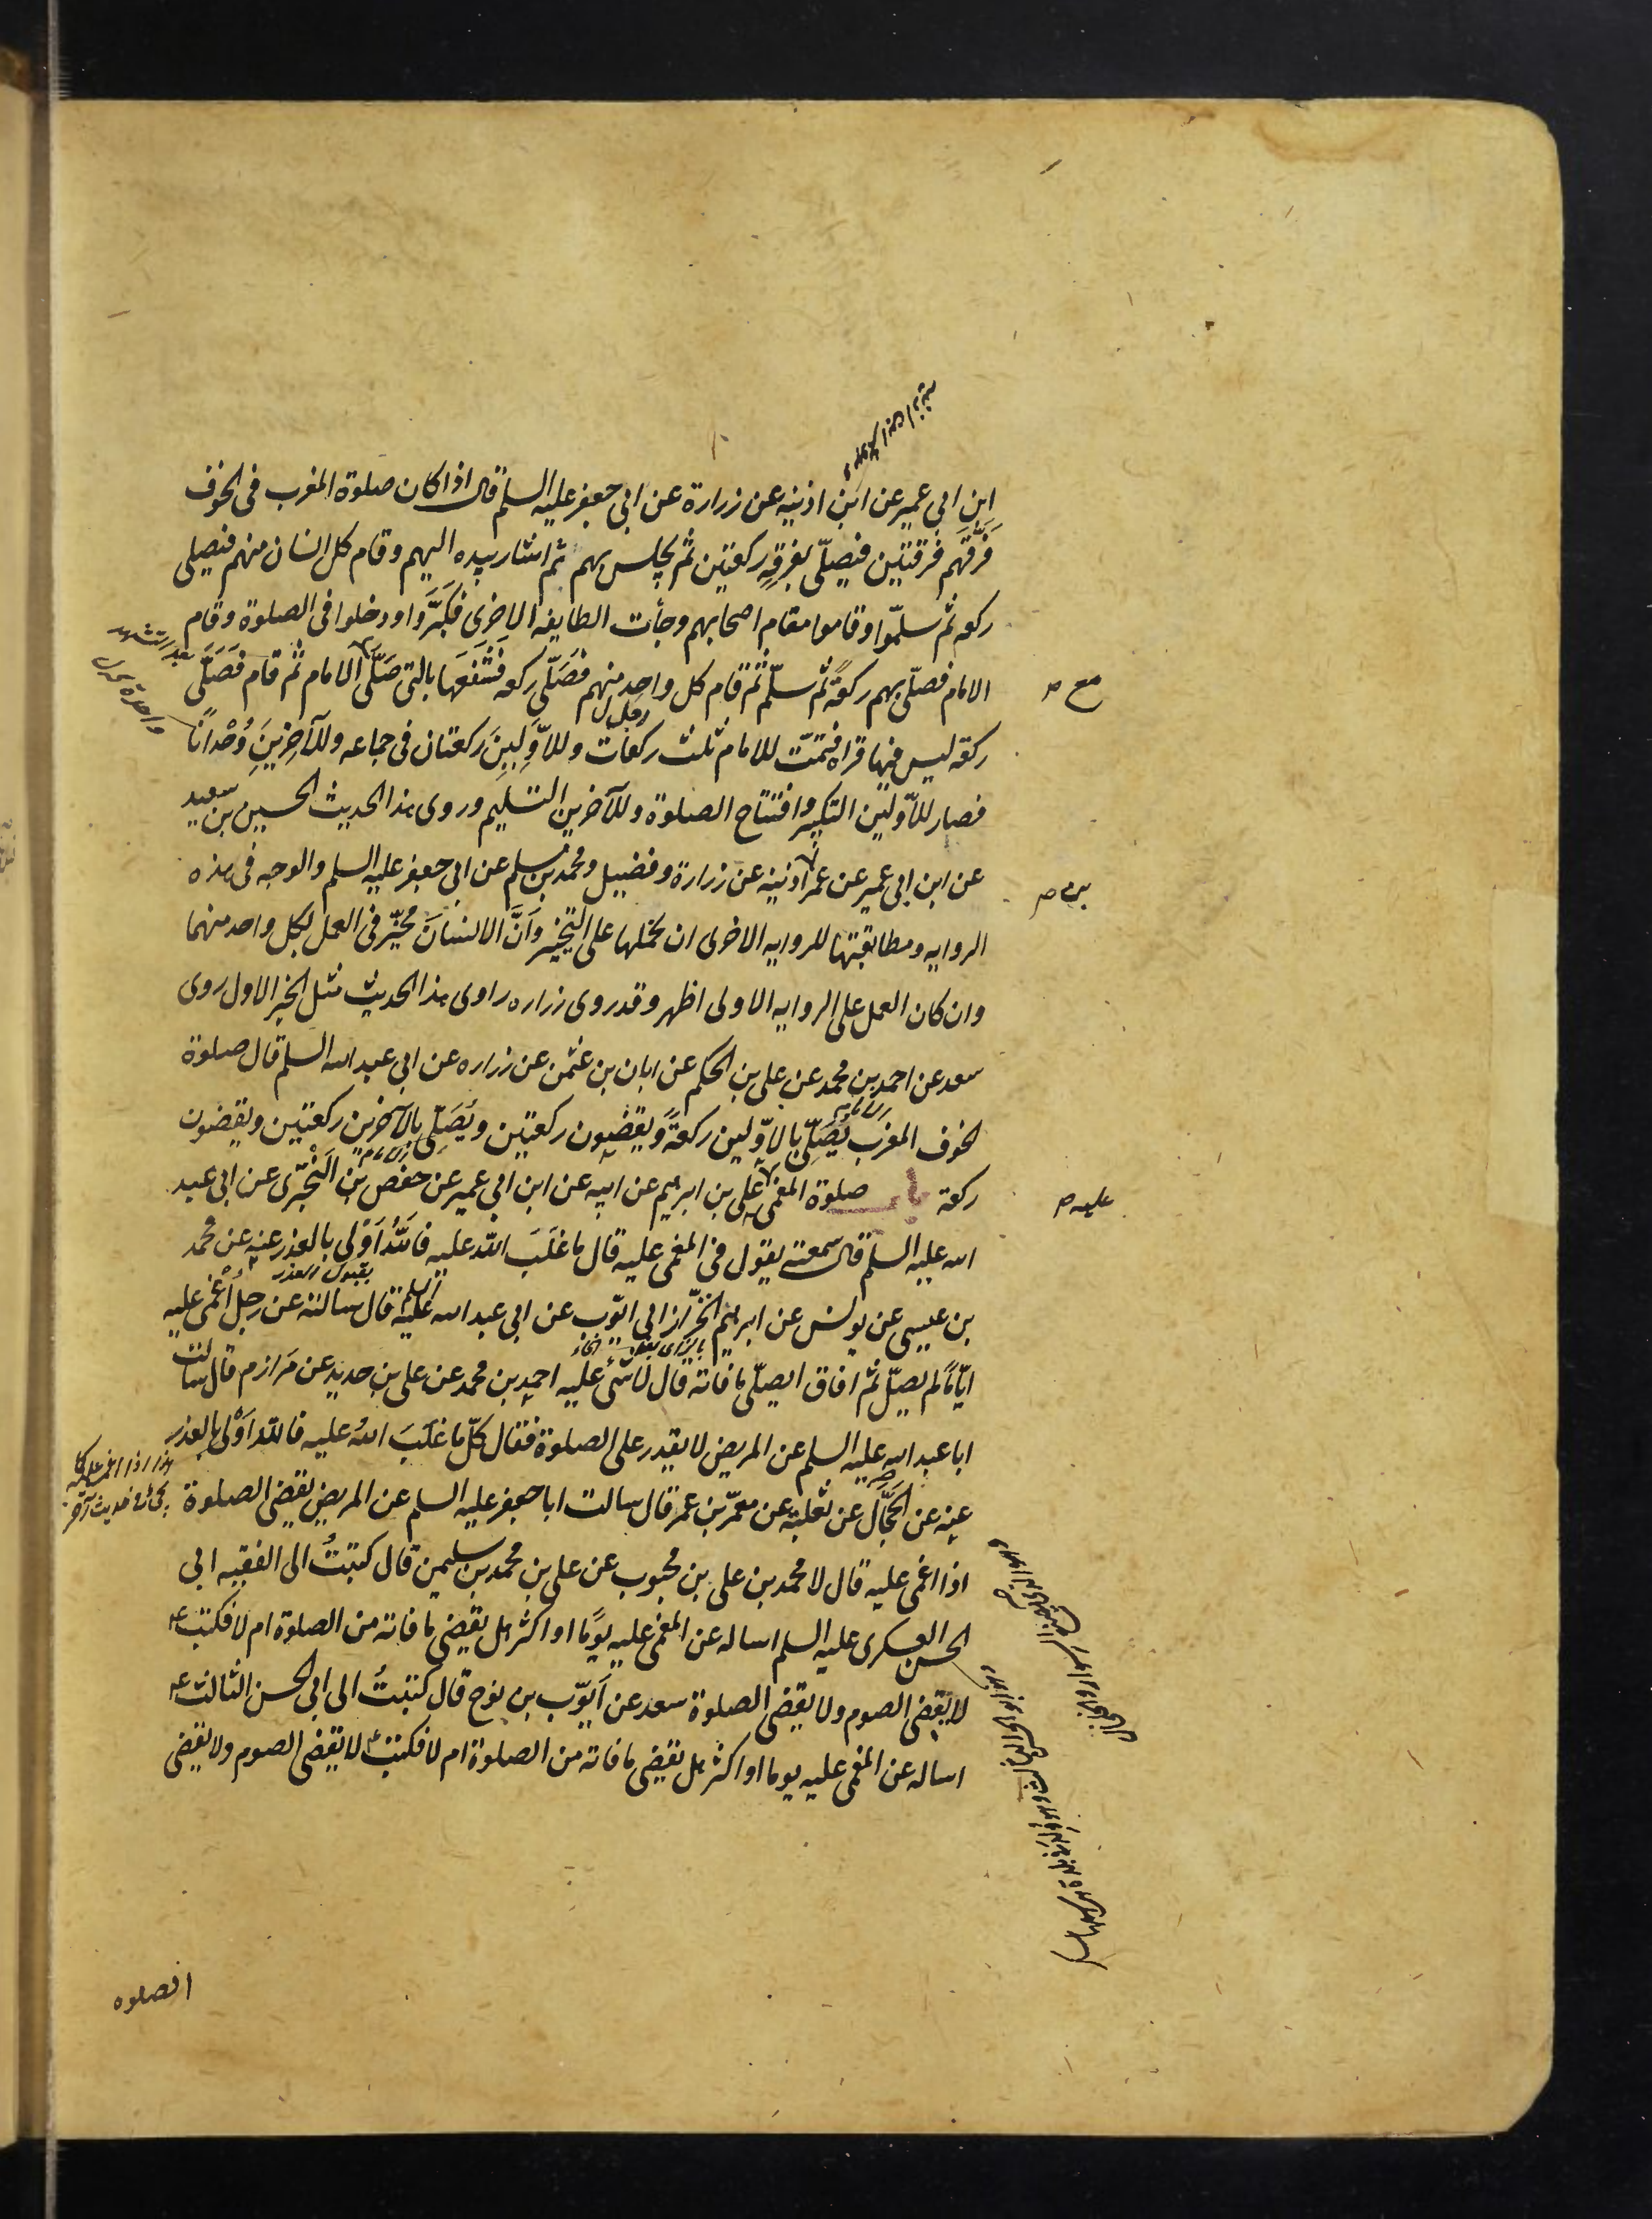 ابن ابی عمیر عن ابن اذینه عن زرارة عن ابی جعفر علیه السلم قال اذا کان صلوة المغرب فی الخوف
فَرَّقَهم فرقتین فیصلّی بفرقةٍ رکعتین ثم جلس بهم ثم اشار بیده الیهم وقام کل انسان منهم فیصلی
رکعه ثم سلّموا وقاموا مقام اصحابهم وجأت الطایفه الاخری فکبَّروا ودخلوا فی الصلوة وقام
بعد التشهد
الامام فصلّی بهم رکعةً ثم سلّم ثم قام کل واحد منهم فصَلّی رکعه فشَفَعَها بالتی صَلَّی الامام ثم قام فَصَلَّی
مع صح
رکعة لیس فیها قراه فتمّت للامام ثلث رکعات وللاَوَّلِینَ رکعتان فی جماعه وللآخرَینِ وُحْداناً
فصار للاوّلین التکبیر وافتتاح الصلوة وللآخرین التسلیم وروی هذا الحدیث الحسین بن سعید
عن ابن ابی عمیر عن عمر اذینه عن زرارة وفضیل ومحمد بن مسلم عن ابی جعفر علیه السلم والوجه فی هذه
بن صح
الروایه ومطابقتها للروایه الاخری ان نحملها علی التخییر وأنَّ الانسانَ مخیّر فی العمل بکل واحد منهما
وان کان العمل علی الروایه الاولی اظهر وقد روی زراره راوی هذا الحدیث مثل الخبر الاول روی
سعد عن احمد بن محمد عن علی بن الحکم عن ابان بن عثمن عن زراره عن ابی عبد الله السلم قال صلوة
الخوف المغرب یُصَلِّی بالاوّلین رکعةً ویقضون رکعتین ویُصَلِّی بالآخرین رکعتین ویقضون
رکعة باب صلوة المغمی علی بن ابرهیم عن ابیه عن ابن ابی عمیر عن حفص بن البَخْتَری عن ابی عبد
علیه صح
الله علیه السلم قال سمعته یقول فی المغمی علیه قال ما غَلَبَ الله علیه فالله اَوْلی بالعذر عنه عن محمد
بقبول العذر
بن عیسی عن یونس عن ابرهیم الخزّاز ابی ایّوب عن ابی عبد الله علیه السلم قال سالته عن رجل اُغمی علیه
ایّاماً لم یصلّ ثم افاق ایصلّی ما فاته قال لا شئ علیه احمد بن محمد عن علی بن حدید عن مَرازم قال سالت
ابا عبد الله علیه السلم عن المریض لا یقدر علی الصلوة فقال کلّ ما غلَبَ اللهُ علیه فالله اَوْلی بالعذر
عنه عن الحَجّال عن ثعلبة عن معمّر بن عمر قال سالت ابا جعفر علیه السلم عن المریض یقضی الصلوة
اذا اغمی علیه قال لا محمد بن علی بن محبوب عن علی بن محمد بن سلیمن قال کتبتُ الی الفقیه ابی
الحسن العسکری علیه السلم اساله عن المغمی علیه یوماً او اکثر هل یقضی ما فاته من الصلوة ام لا فکتب ع
لا یقضی الصوم ولا یقضی الصلوة سعد عن اَیّوب بن نوح قال کتبتُ الی ابی الحسن الثالث ع
اساله عن المغمی علیه یوما او اکثر هل یقضی ما فاته من الصلوة ام لا فکتب لا یقضی الصوم ولا یقضی
الصلوه